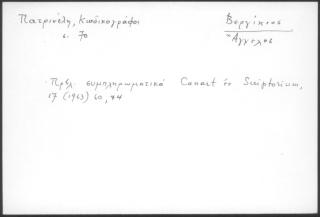 Πατρινέλη, Κωδικογράφοι
Βεργίκιος
σ. 70
Ἄγγελος
Πρβλ. συμπληρωματικά Canart ἐν Scriptorium,
17 (1963) 60, 74